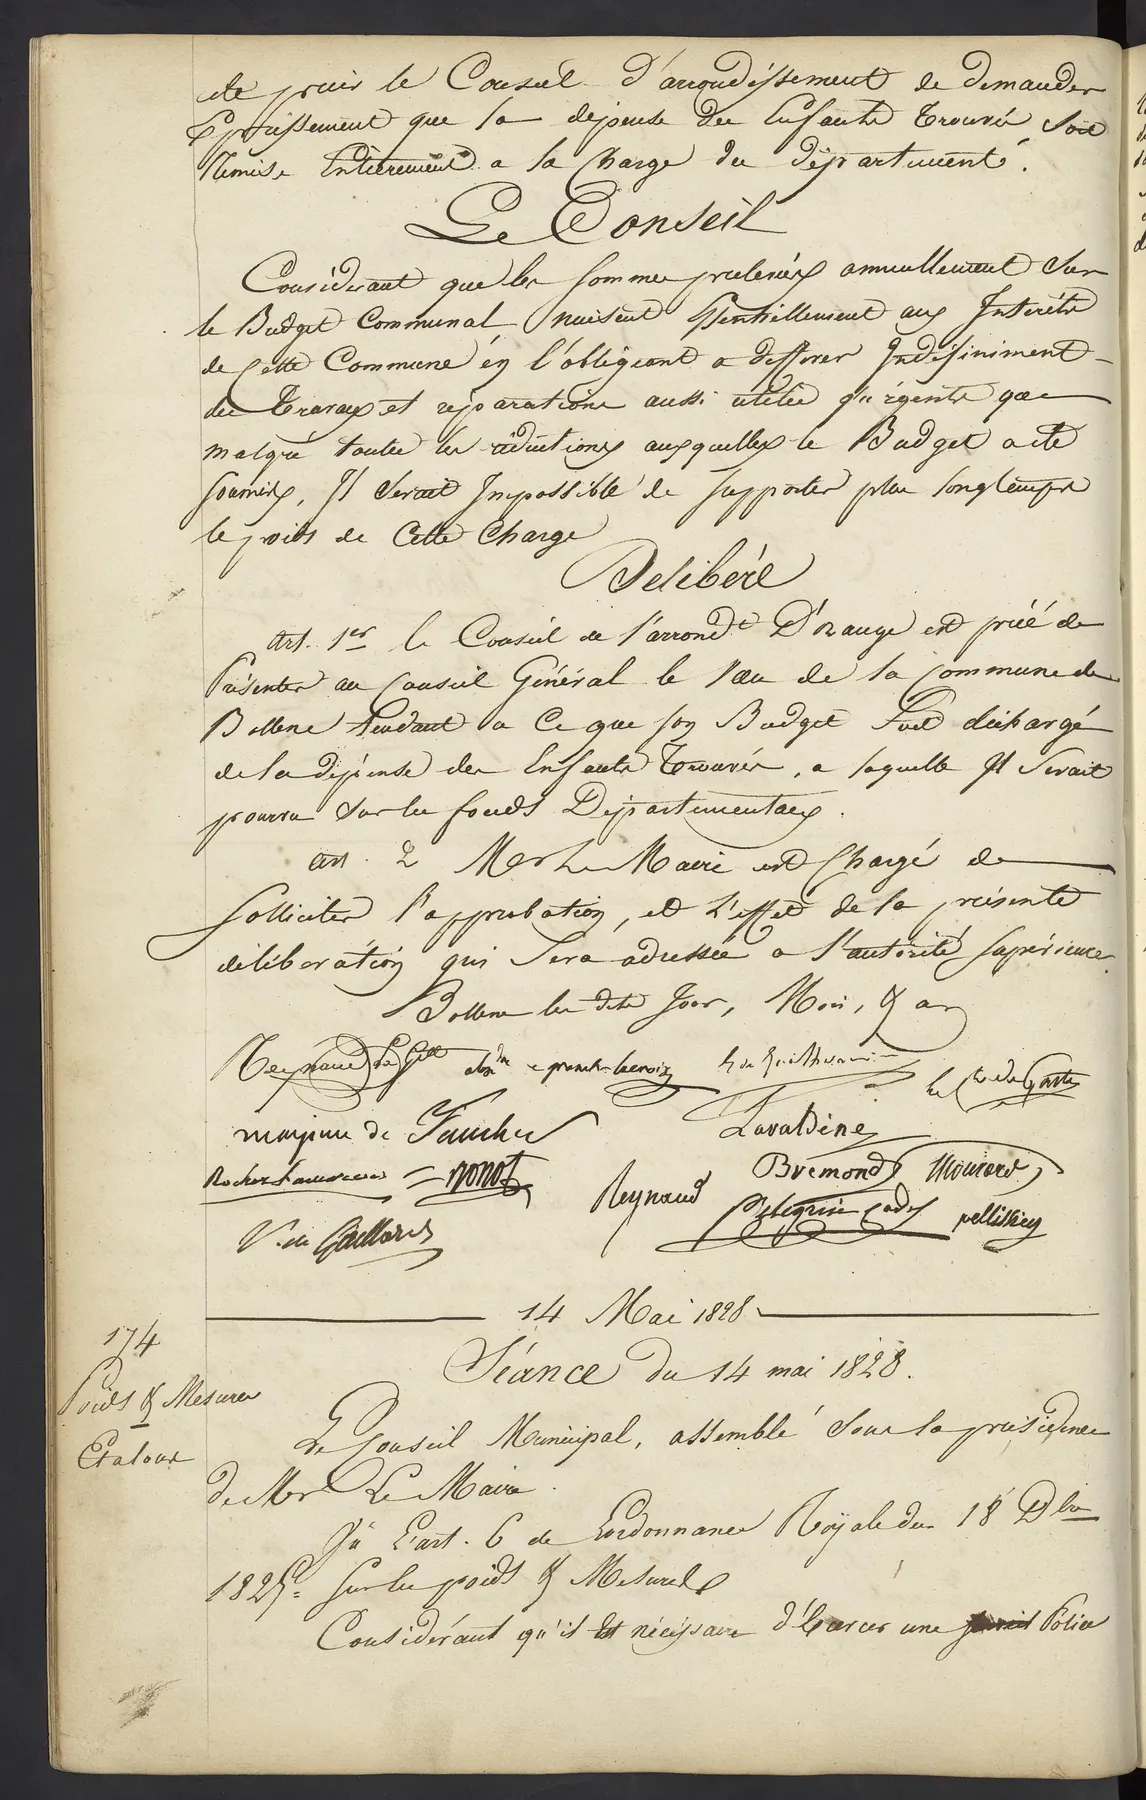 de prier le Conseil d'arrondissement de demander
Expressement que la depense des Enfants Trouvés soit
Remise Entierement a la Charge du département.
Le Conseil
Considerant que les sommes prelevées annuellement sur
le Budget Communal nuisent Essentiellement aux Interêts
de Cette Commune én l'obligeant a differer Indefiniment
des Travaux et réparations aussi utiles qu'urgents que
malgré toutes les réductions auxquelles le Budget a été
soumis, Il serait Impossible de supporter plus longtemps
le poids de Cette Charge
Delibére
Art. 1er le Conseil de l'arrondt D'orange est prié de
Présenter au Conseil Général le vœu de la Commune de
Bollene tendant a Ce que son Budget soit déchargé
de la dépense des Enfants Trouvés, a laquelle Il serait
pourvu sur les fonds Départementaux.
art. 2 Mr Le Maire est Chargé de
solliciter l'approbation, et L'effet de la présente
délibération qui sera adressée a l'autorité supérieure.
Bollene les dits Jour, Mois, & an
Reynaud
Faucher
Lavaldène
nonot
Reynaud
Bremond
pellissier
V. de Gaillard
14 Mai 1828
174
Séance du 14 mai 1828.
Poids & Mesures
Etalons
Le Conseil Municipal, assemblé sous la présidence
de Mr Le Maire.
Vu L'art. 6 de L'ordonnance Royale du 18 Dbre
1825 sur les poids & Mesures
Considérant qu'il Est nécéssaire d'Exercer une Police